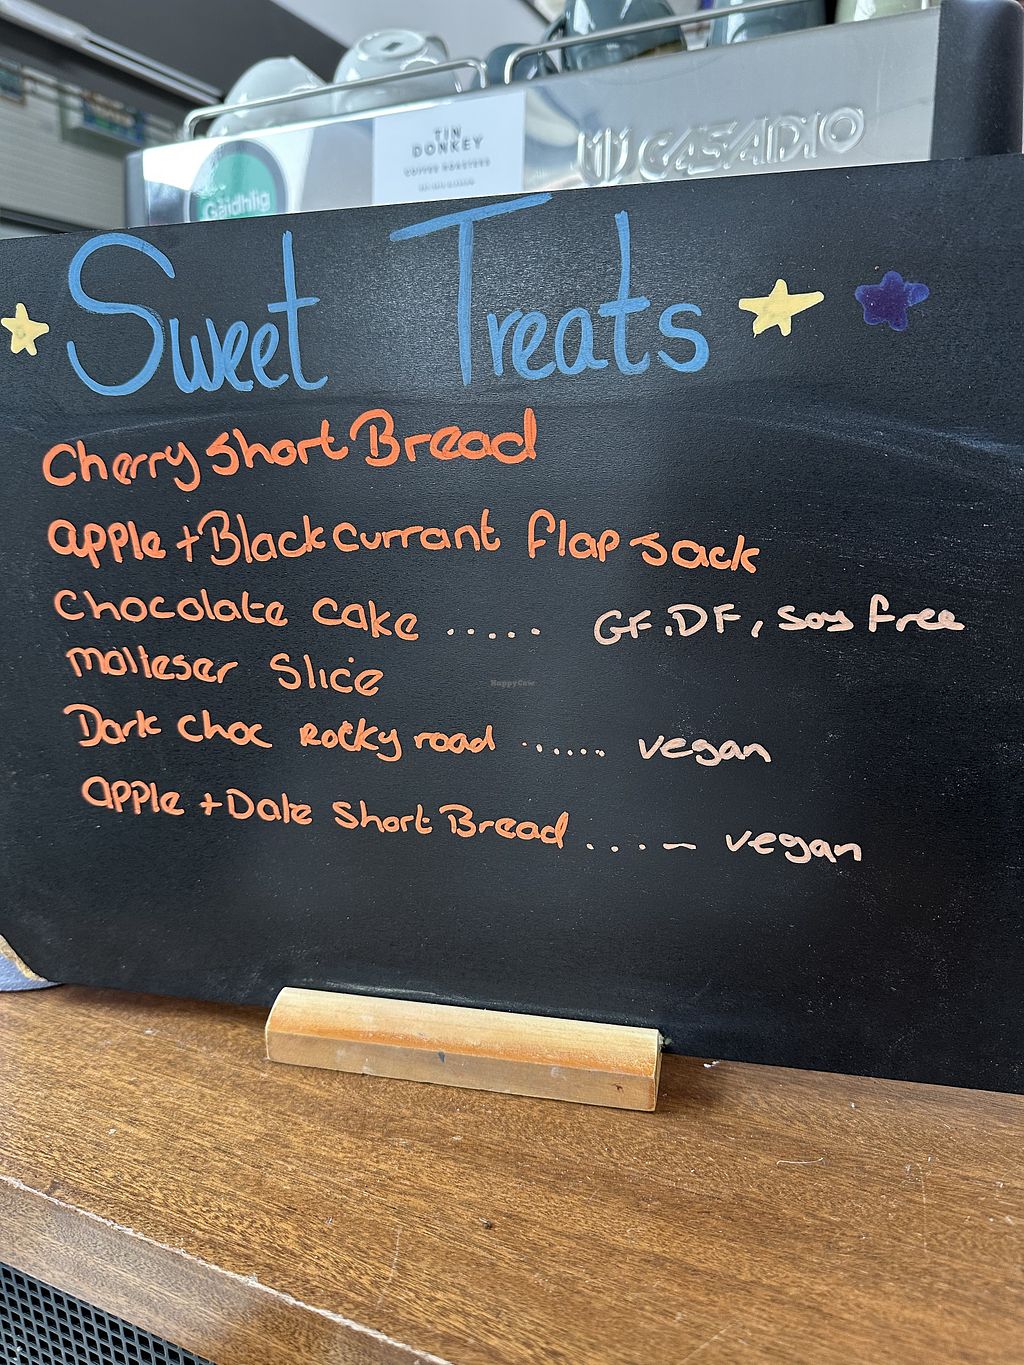 TIN
DONKEY
COFFEE ROASTERS
CASADIO
Gàidhlig
Sweet Treats
Cherry Short Bread
apple + Blackcurrant flapjack
Chocolate Cake ..... GF.DF, Soy free
Malteser Slice
Dark Choc Rocky road ...... vegan
apple + Date Short Bread ....- vegan
HappyCow